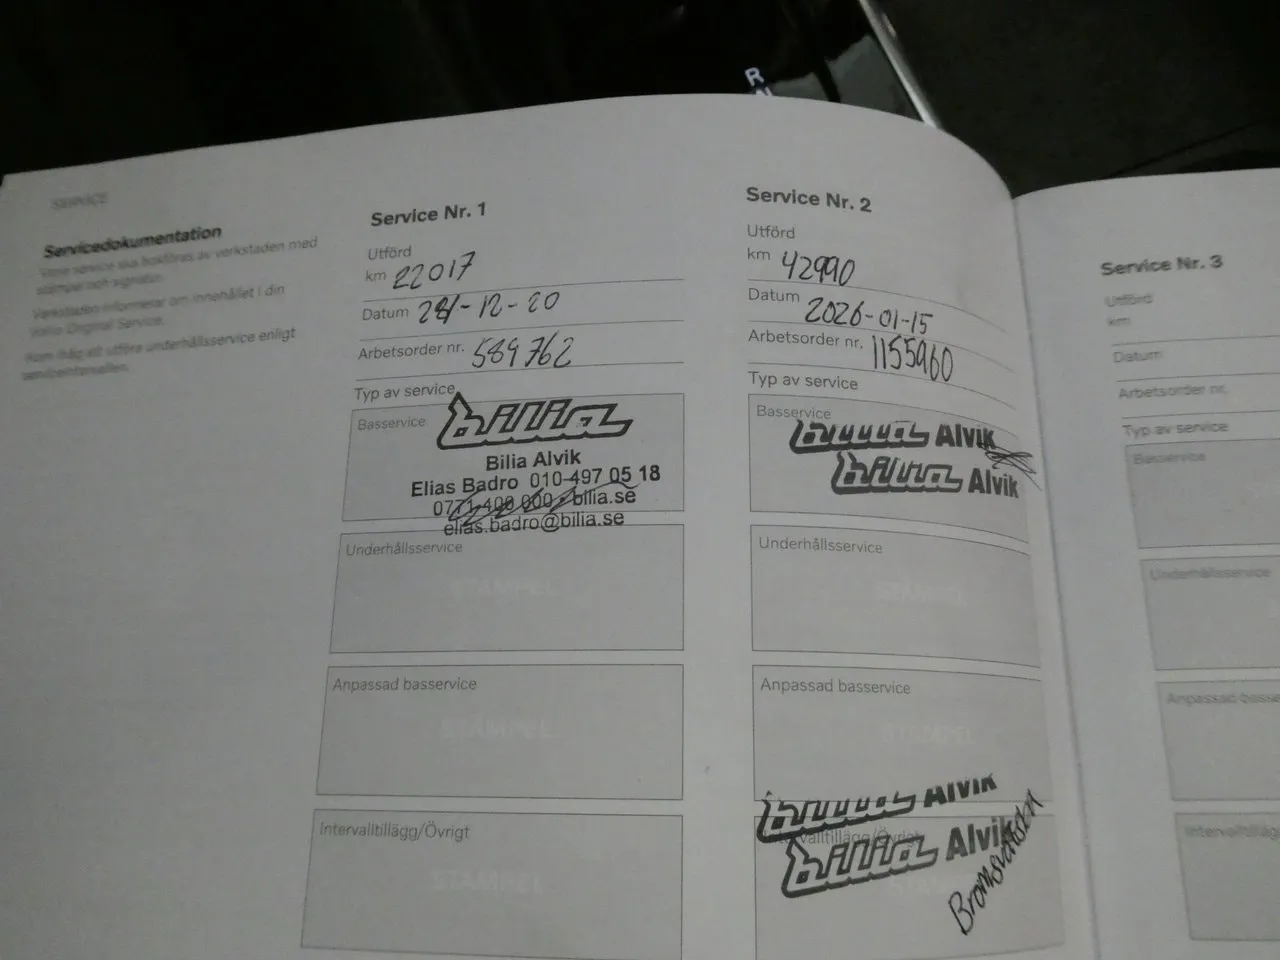 R
SERVICE
Servicedokumentation
Varje service ska bokföras av verkstaden med
stämpel och signatur.
Verkstaden informerar om innehållet i din
Volvo Original Service.
Kom ihåg att utföra underhållsservice enligt
Service Nr. 1
Utförd
km 22017
Datum 28/-12-20
Arbetsorder nr. 589762
Typ av service
Basservice
bilia
Bilia Alvik
Elias Badro 010-497 05 18
0771-400 000 • bilia.se
elias.badro@bilia.se
Underhållsservice
STÄMPEL
Anpassad basservice
STÄMPEL
Intervalltillägg/Övrigt
STÄMPEL
Service Nr. 2
Utförd
km 42990
Datum 2026-01-15
Arbetsorder nr. 1155960
Typ av service
Basservice
bilia Alvik
bilia Alvik
Underhållsservice
STÄMPEL
Anpassad basservice
STÄMPEL
bilia Alvik
Intervalltillägg/Övrigt
bilia Alvik
Bromsvätska
Service Nr. 3
Utförd
km
Datum
Arbetsorder nr.
Typ av service
Basservice
Underhållsservice
Anpassad basse
Intervalltillägg